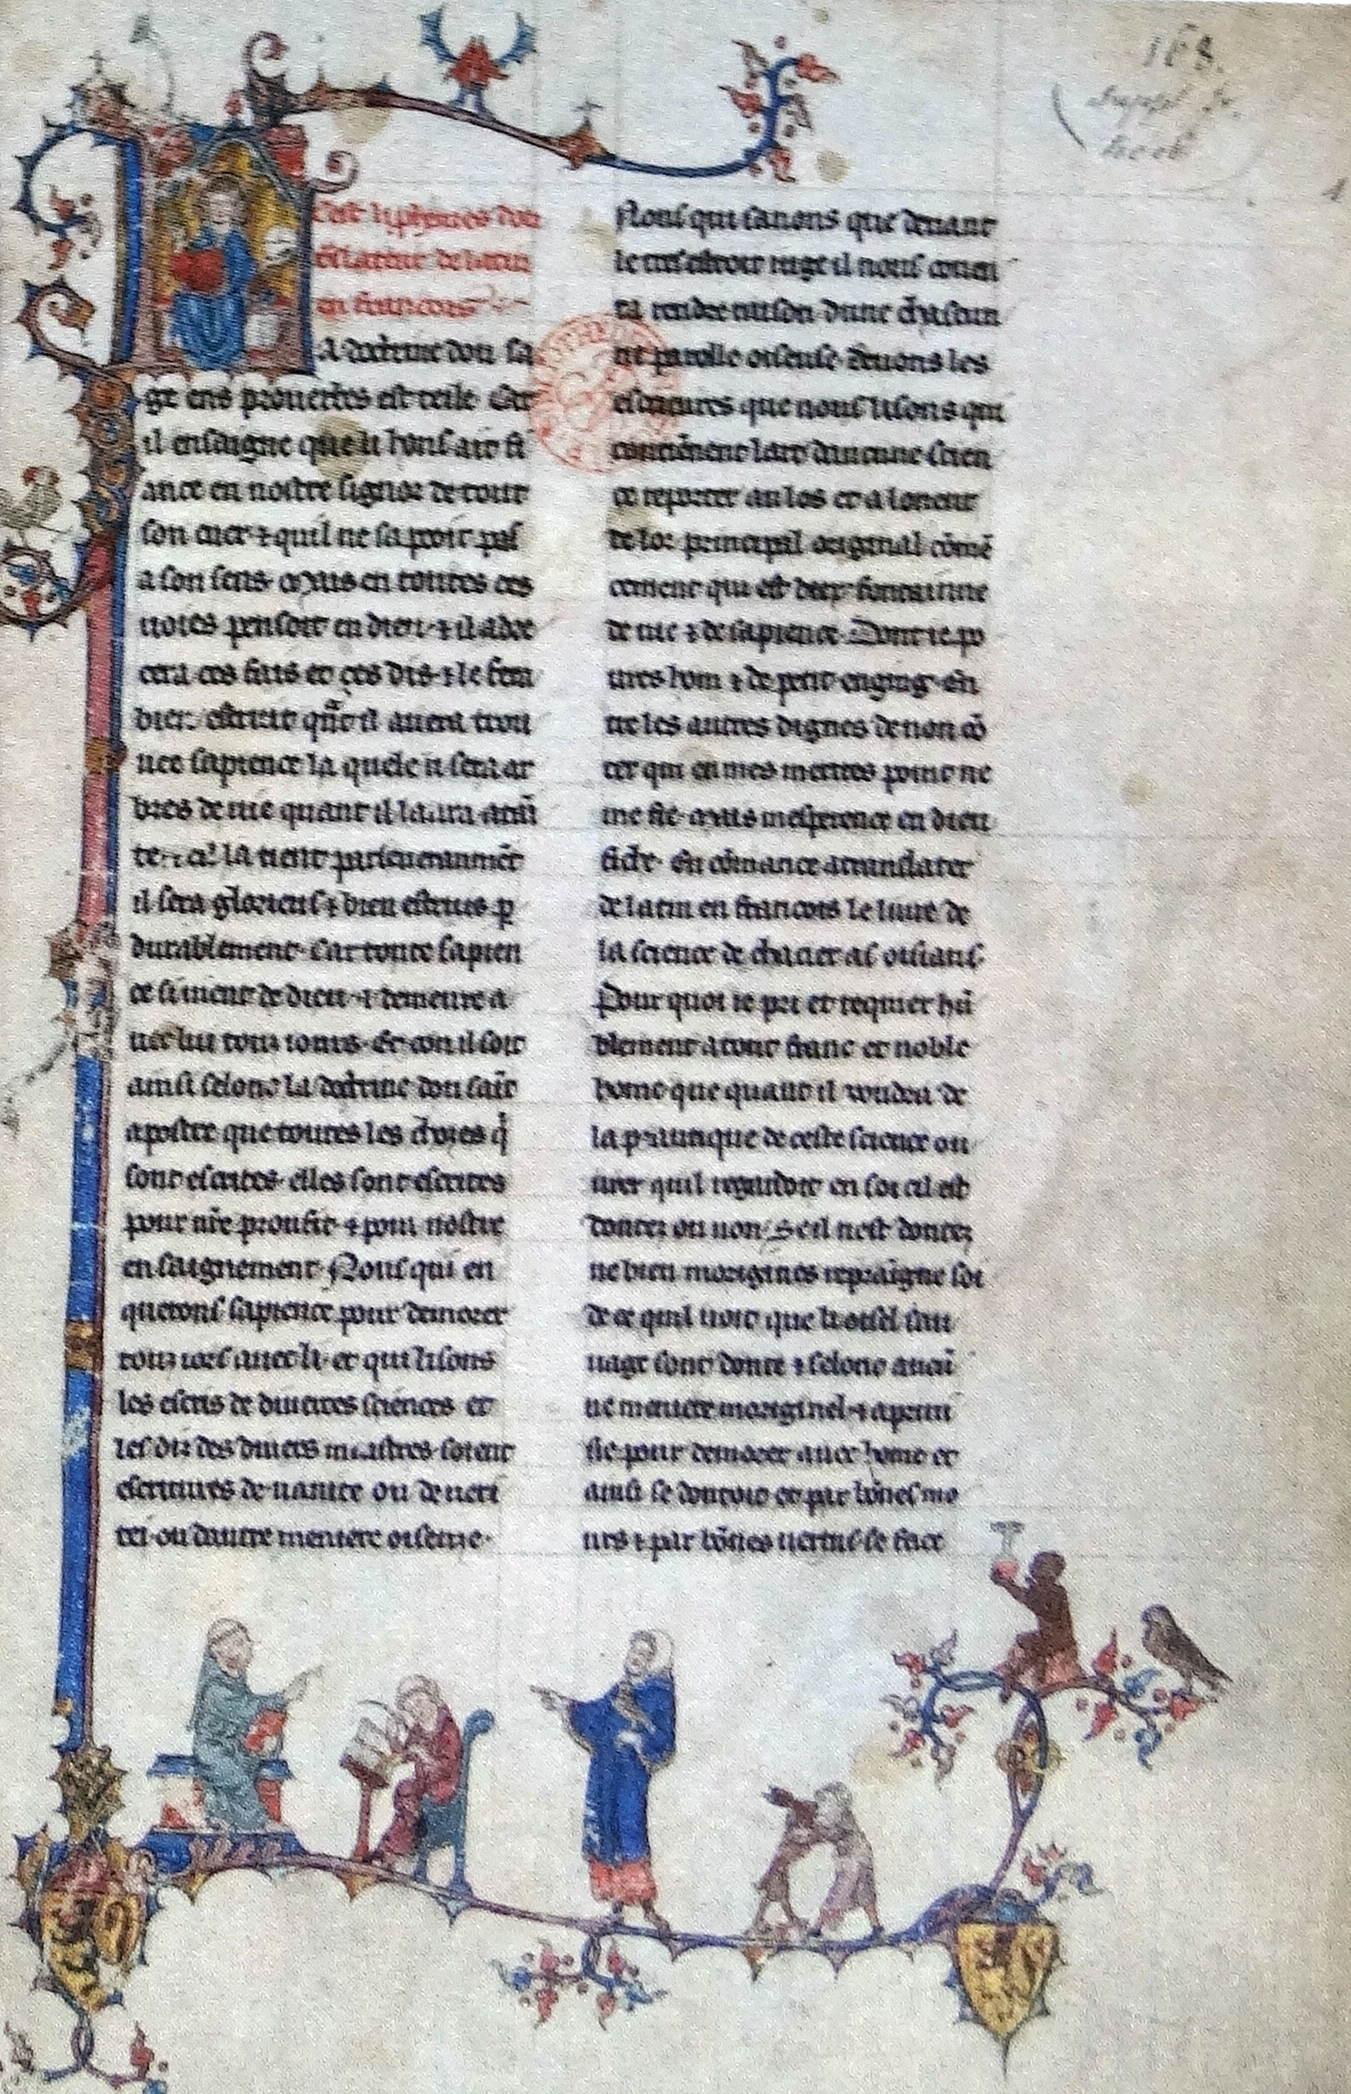 168.
1
Cest li prheimes dou
en francois
La doctrine dou sa
ge ens prouerbes est teile Car
il ensaigne que li hons ait fi
ance en nostre signor de tout
son cuer ⁊ quil ne sapoit pas
a son sens. Mais en toutes ces
uoies pensoit en dieu. ⁊ il adre
cera ces fais et ces dis. ⁊ le fera
bien estruit quāt il auera trou
uee sapience la quele li sera ar
bres de uie quant il laura
la tient
il sera glorieus ⁊ bien estruis
durablement. Car toute sapien
ce si uient de dieu. ⁊ demeure a
uec lui touz iours. Et con il soit
ainsi selonc la doctrine dou sait
apostre que toutes les choses q̇
sont escrites. elles sont escrites
pour nr̄e proufit ⁊ pour nostre
ensaignement. Nous qui en
querons sapience pour demorer
touz iors auec li. et qui lisons
les escris de diuerses sciences et
les diz des diuers maistres. soient
escritures de uanite ou de ueri
tei. ou dautre meniere oiseuse.
Nous qui sauons que deuant
le tres estroit iuge il nous couen
ra rendre raison. dune chascun
ne parolle oiseuse. deuons les
escritures que nous lisons qui
contiēnent lart daucune scien
ce reporter au los et a loneur
de lor principal original cōmē
cement qui est diex. fontainne
de uie ⁊ de sapience. Dont ie po
ures hom ⁊ de petit enging. En
tre les autres dignes de non cō
ter qui en mes merites point ne
me fie. Mais mesperence en dieu
fiche. En cōmance a translater
de latin en francois le liure de
la science de chacier as oisians.
Pour quoi ie pri et requier hū
blement a tout franc et noble
home que quant il voudra de
la pratique de ceste science ou
urer quil regardoit en soi cil est
dontez ou non. Seil nest dontez
ne bien morigines repraigne soi
de ce quil uoit que li oisel sau
uage sont donte ⁊ selonc aucū
ne meniere moriginel. ⁊ apriui
sie pour demorer auec home et
ainsi se dontoit et par bōnes mo
urs ⁊ par bōnes uertus se face